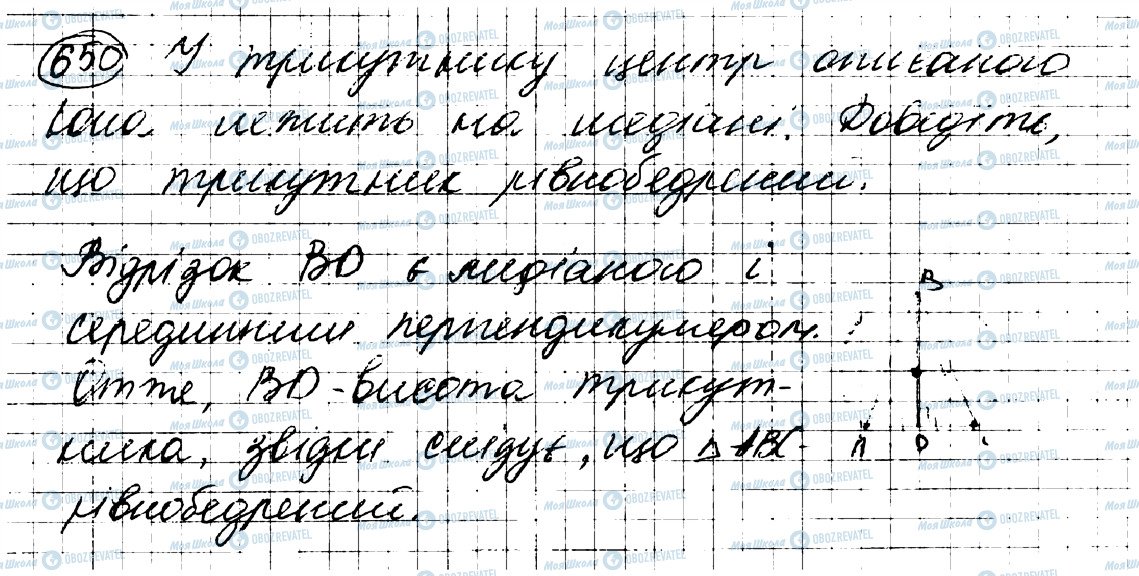 650 У трикутнику центр описаного
кола лежить на медіані. Доведіть,
що трикутник рівнобедрений.
Відрізок BD є медіаною і
серединним перпендикуляром.
Отже, BD - висота трикут-
ника, звідки слідує, що △ ABC -
рівнобедрений.
B
A D C